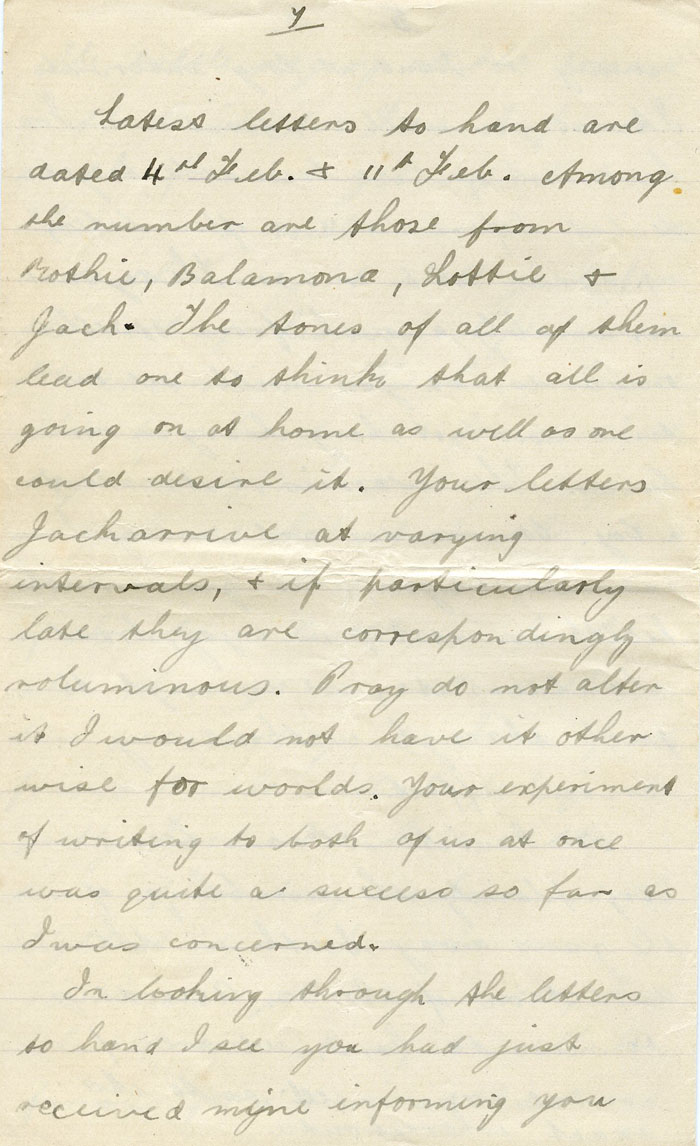 7
Latest letters to hand are
dated 4rd Feb. & 11th Feb. Among
the number are those from
Rothie, Balamona, Lottie &
Jack. The tones of all of them
lead one to think that all is
going on at home as well as one
could desire it. Your letters
Jack arrive at varying
intervals, & if particularly
late they are correspondingly
voluminous. Pray do not alter
it I would not have it other
wise for worlds. Your experiment
of writing to both of us at once
was quite a success so far as
I was concerned.
In looking through the letters
to hand I see you had just
received mine informing you